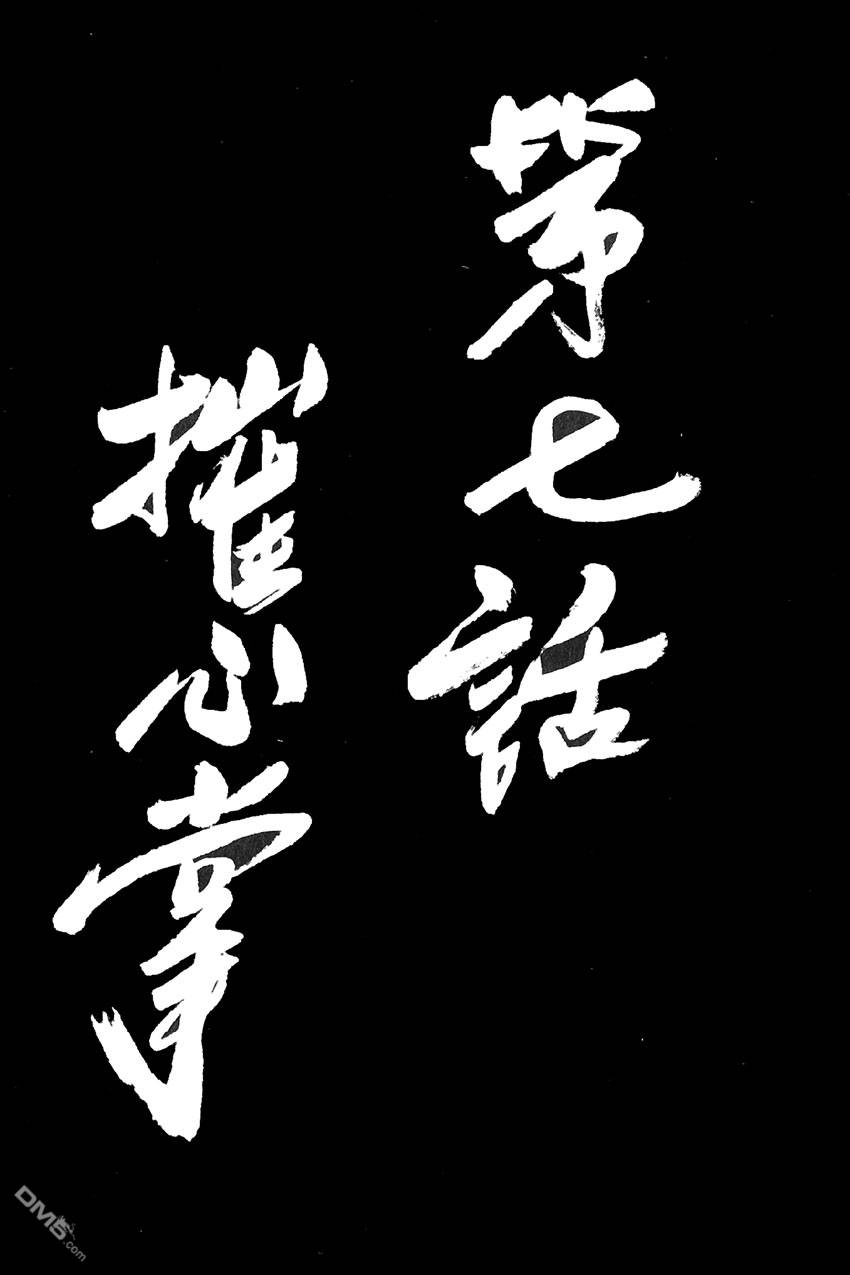 第七話
摧心掌
DM5.com